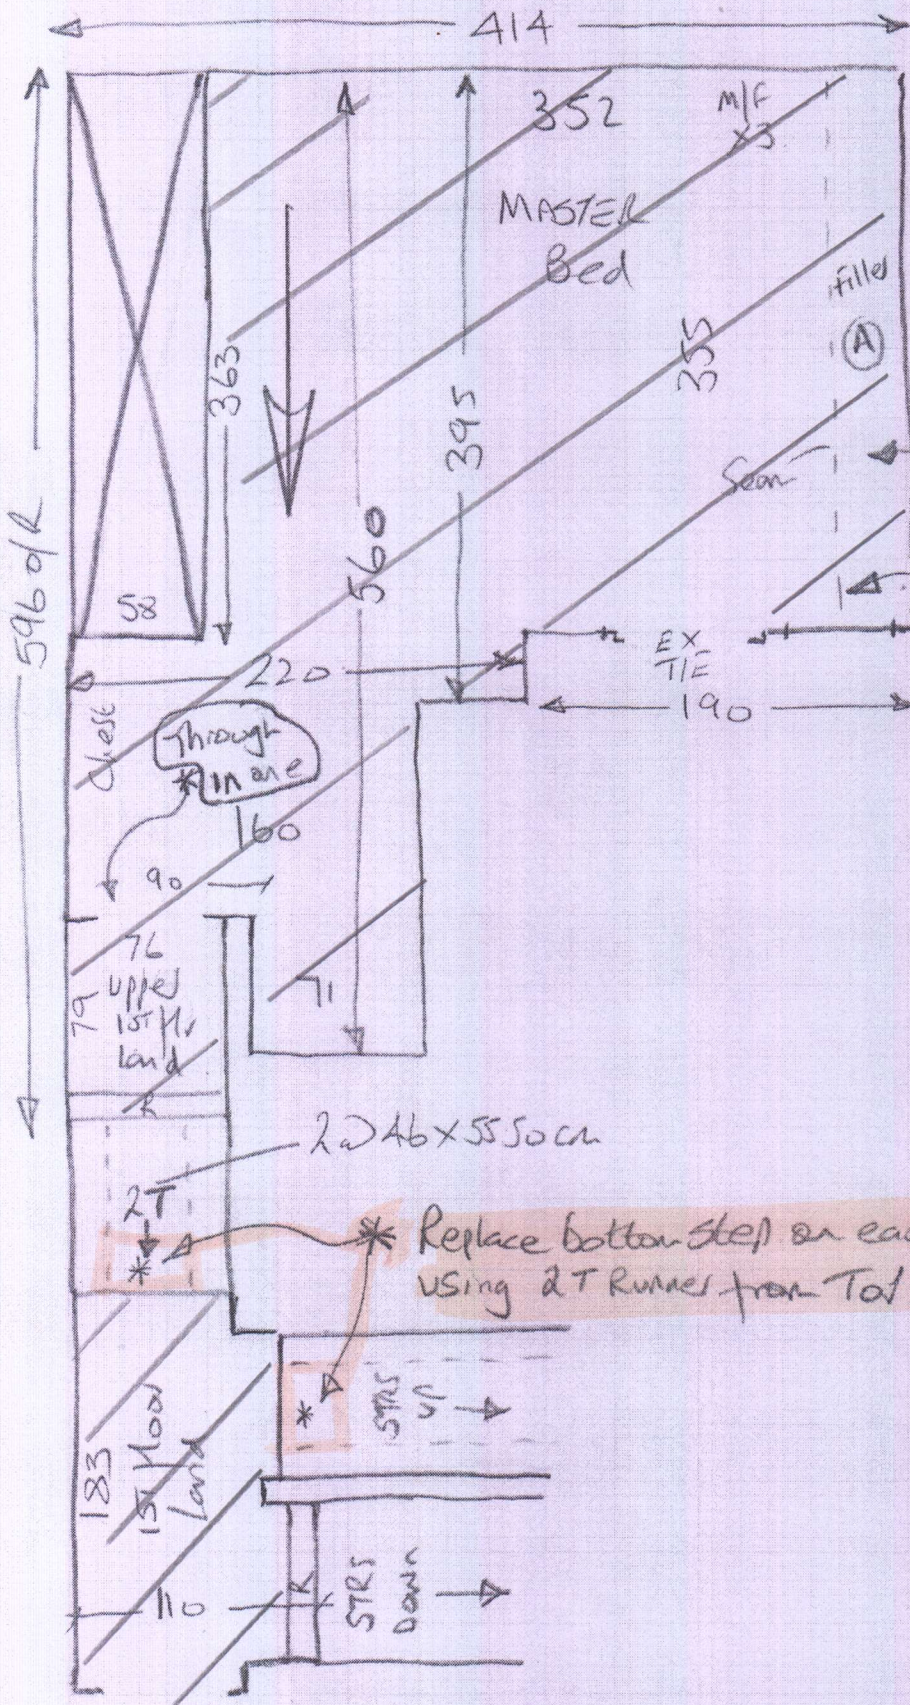 414
352
M/F
x3
MASTER
Bed
filler
A
363
355
395
Seam
560
596 o/R
58
EX
T/E
220
190
Chest
Through
* in one
160
90
76
79
upper
1ST Flr
land
71
R
2 @ 46 x 55 50cm
2T
*
* Replace bottom step on eac
using 2T Runner from Tot
*
STRS
UP
183
1ST Floor
Land
R
STRS
DOWN
110